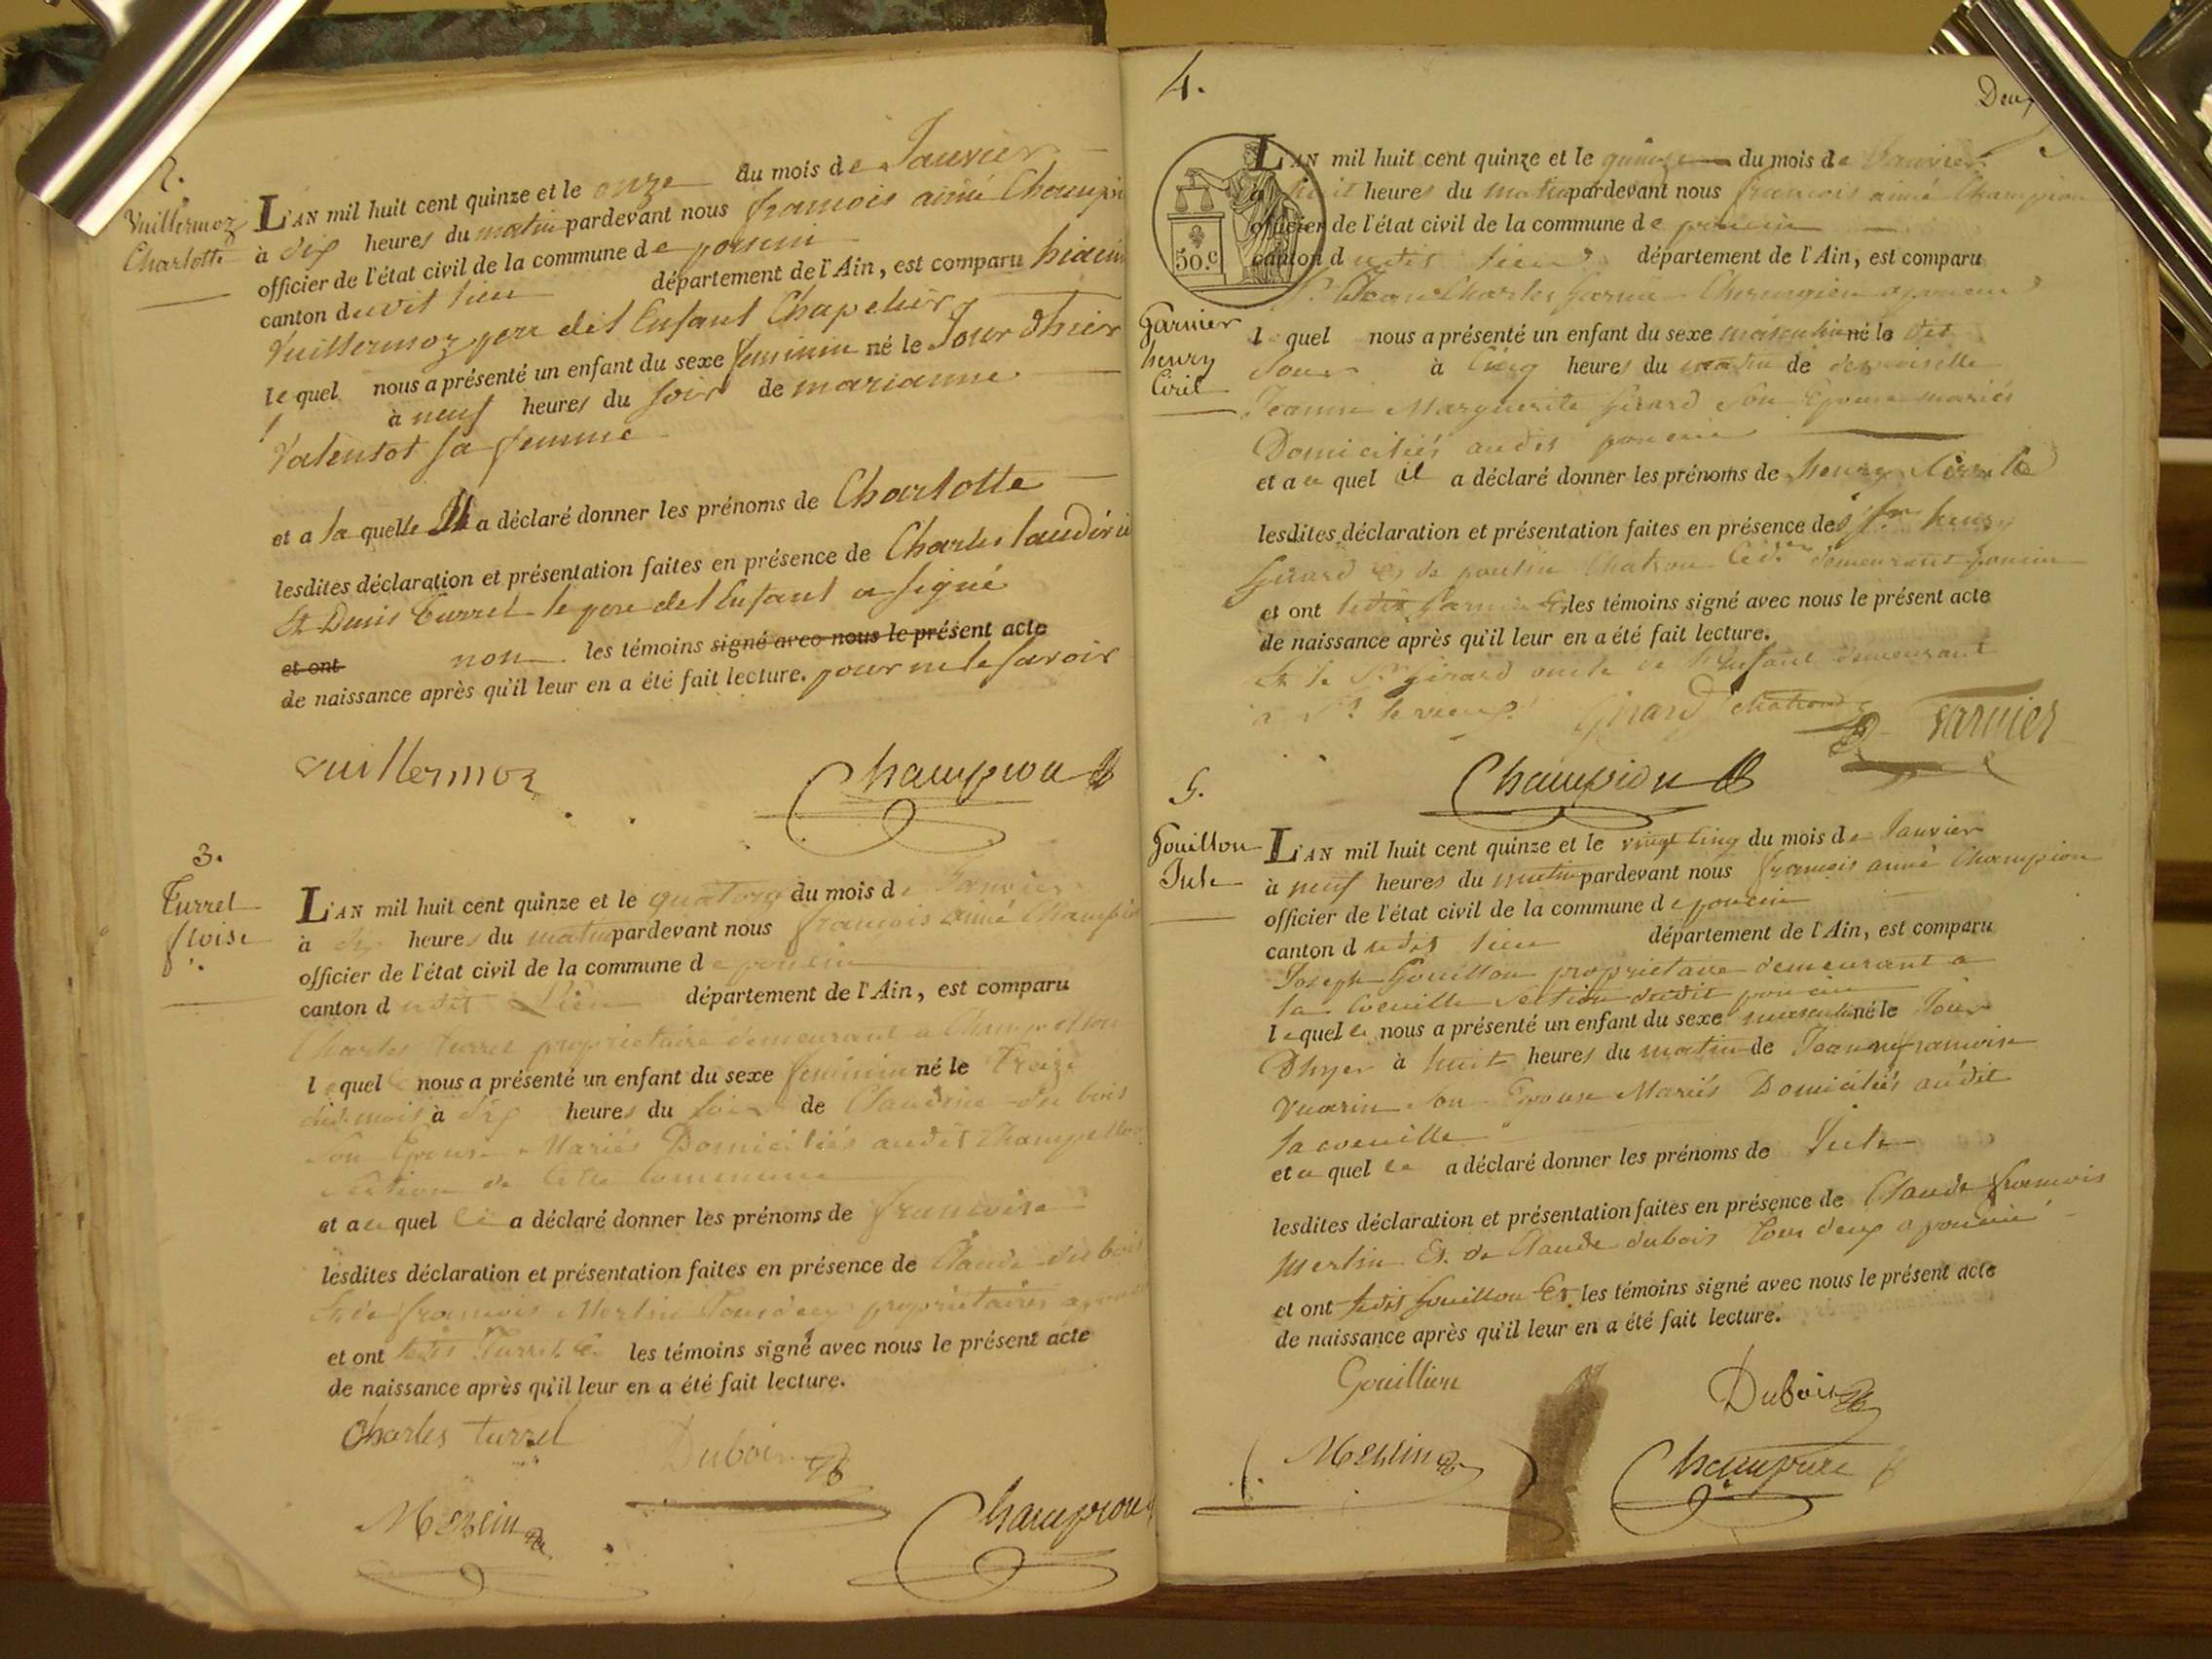 2.
Vuillermoz
Charlotte
L'AN mil huit cent quinze et le onze du mois de Janvier
à dix heures du matin pardevant nous francois aimé Champion
officier de l'état civil de la commune de poncin
canton dudit lieu département de l'Ain, est comparu
Vuillermoz pere de l'Enfant Chapelier
lequel nous a présenté un enfant du sexe feminin né le Jour d'hier
à neuf heures du soir de marianne
Valentot sa femme
et a la quelle Il a déclaré donner les prénoms de Charlotte
lesdites déclaration et présentation faites en présence de Charles
Et Denis Turrel le pere de l'Enfant a signé
et ont non les témoins signé avec nous le présent acte
de naissance après qu'il leur en a été fait lecture. pour ne le savoir
vuillermoz
Champion
3.
Turrel
L'AN mil huit cent quinze et le quatorze du mois de Janvier
à dix heures du matin pardevant nous francois aimé Champion
officier de l'état civil de la commune de poncin
canton dudit Lieu département de l'Ain, est comparu
Charles Turrel proprietaire demeurant a
lequel nous a présenté un enfant du sexe feminin né le Treize
dud. mois à dix heures du soir de Claudine du bois
son Epouse Mariés Domiciliés audit
section de cette Commune
et au quel a déclaré donner les prénoms de francoise
lesdites déclaration et présentation faites en présence de Claude du bois
francois Merlin Tous deux proprietaires a
et ont ledit Turrel les témoins signé avec nous le présent acte
de naissance après qu'il leur en a été fait lecture.
Charles turrel
Dubois
Merlin
Champion
4.
Deux
50.c
Garnier
henry
Ciril
L'AN mil huit cent quinze et le quinze du mois de Janvier
à huit heures du matin pardevant nous francois aimé Champion
officier de l'état civil de la commune de poncin
canton dudit lieu département de l'Ain, est comparu
Sr. Charles Garnier Chirurgien a poncin
lequel nous a présenté un enfant du sexe masculin né le dit
Jour à Cinq heures du matin de demoiselle
Jeanne Marguerite Girard son Epouse mariés
Domiciliés audit poncin
et au quel il a déclaré donner les prénoms de henry
lesdites déclaration et présentation faites en présence de henry
Girard Et de Chatron demeurant poncin
et ont ledit Garnier Et les témoins signé avec nous le présent acte
de naissance après qu'il leur en a été fait lecture.
Et le Sr Girard oncle de l'Enfant demeurant
a St. le vieux
Girard Chatron Garnier
Champion
5.
Gouillon
Jule
L'AN mil huit cent quinze et le vingt Cinq du mois de Janvier
à neuf heures du matin pardevant nous francois aimé Champion
officier de l'état civil de la commune de poncin
canton dudit lieu département de l'Ain, est comparu
Joseph Gouillon proprietaire demeurant a
la section dudit poncin
lequel nous a présenté un enfant du sexe masculin né le Jour
D'hyer à huit heures du matin de Jeanne francoise
Vuarin son Epouse Mariés Domiciliés audit
et au quel a déclaré donner les prénoms de Jule
lesdites déclaration et présentation faites en présence de Claude francois
Merlin Et de Claude dubois Tous deux a poncin
et ont ledit Gouillon Et les témoins signé avec nous le présent acte
de naissance après qu'il leur en a été fait lecture.
Gouillon
Dubois
Merlin
Champion